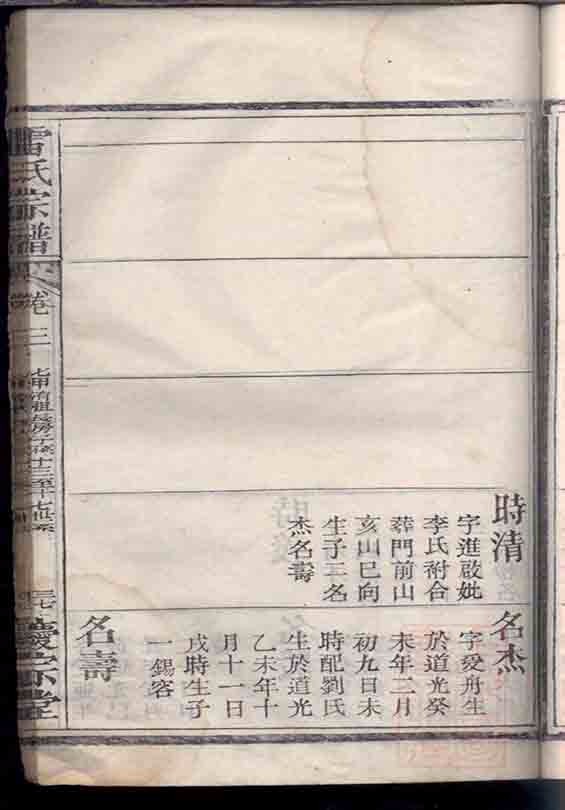 時清
字進啟妣
李氏祔合
葬門前山
亥山巳向
生子二名
杰名壽
名杰
字愛舟生
於道光癸
未年二月
初九日未
時配劉氏
生於道光
乙未年十
月十一日
戌時生子
一錫容
名壽
氏宗譜
卷三